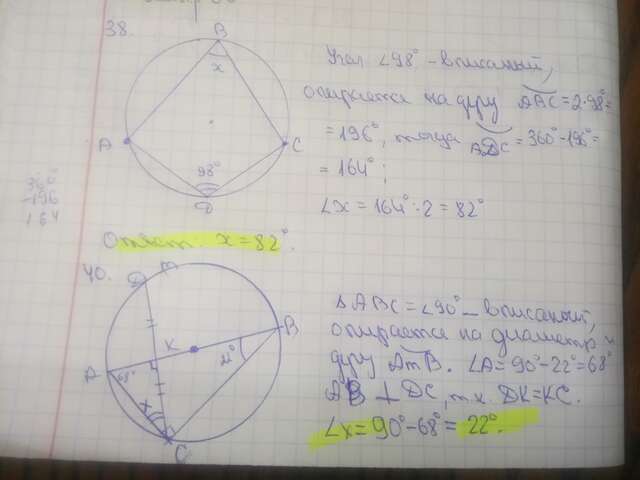 38.
B
x
A
C
98°
D
Угол ∠98° - вписанный,
опирается на дугу ABC = 2·98° =
= 196°, тогда ADC = 360° - 196° =
= 164°;
∠x = 164° : 2 = 82°
360°
-196
164
Ответ: x = 82°.
40.
D m
B
K
22°
A
68°
x
C
△ABC = ∠90° - вписанный,
опирается на диаметр и
дугу AmB. ∠A = 90° - 22° = 68°
AB ⊥ DC, т.к. DK = KC.
∠x = 90° - 68° = 22°.